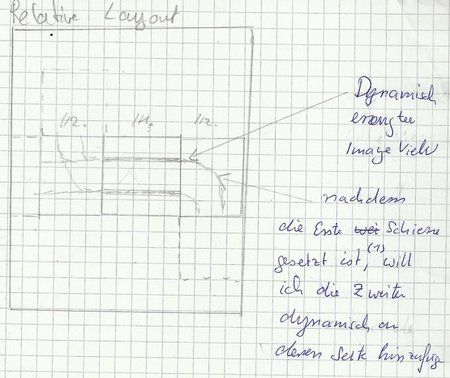 Relative Layout
1/2. 1/1. 1/2.
Dynamisch
erzeugter
Image View
nachdem
die Erste Schiene
gesetzt ist, (1) will
ich die Zweite
dynamisch an
deren Seite hinzufüge